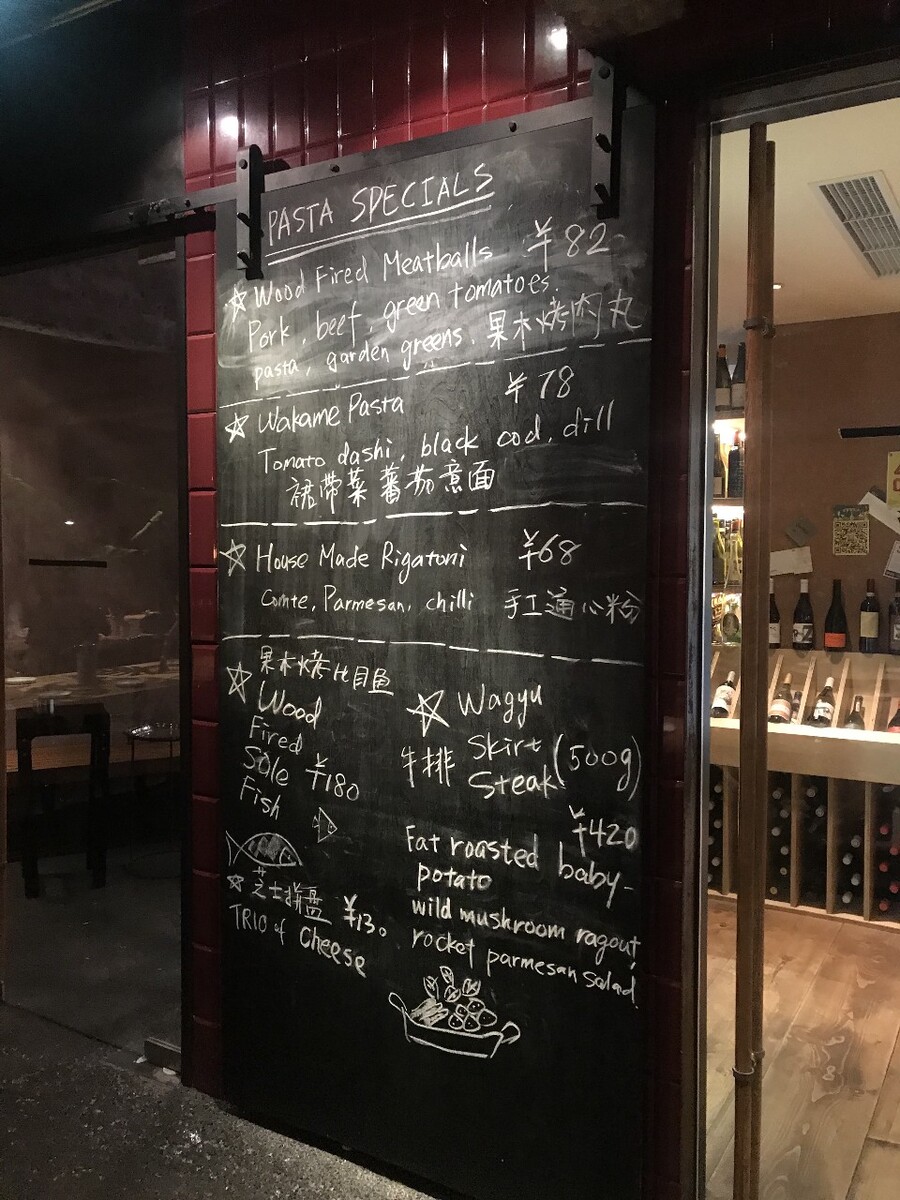 PASTA SPECIALS
☆ Wood Fired Meatballs ¥82
Pork, beef, green tomatoes.
pasta, garden greens. 果木烤肉丸
☆ Wakame Pasta ¥78
Tomato dashi, black cod, dill
裙带菜蕃茄意面
☆ House Made Rigatoni ¥68
Comte, Parmesan, chilli 手工通心粉
果木烤比目鱼
☆ Wood
Fired
Sole ¥180
Fish
☆ 芝士拼盘 ¥130
TRIO of Cheese
☆ Wagyu
牛排 Skirt
Steak (500g)
¥420
Fat roasted baby-
potato
wild mushroom ragout,
rocket parmesan salad.